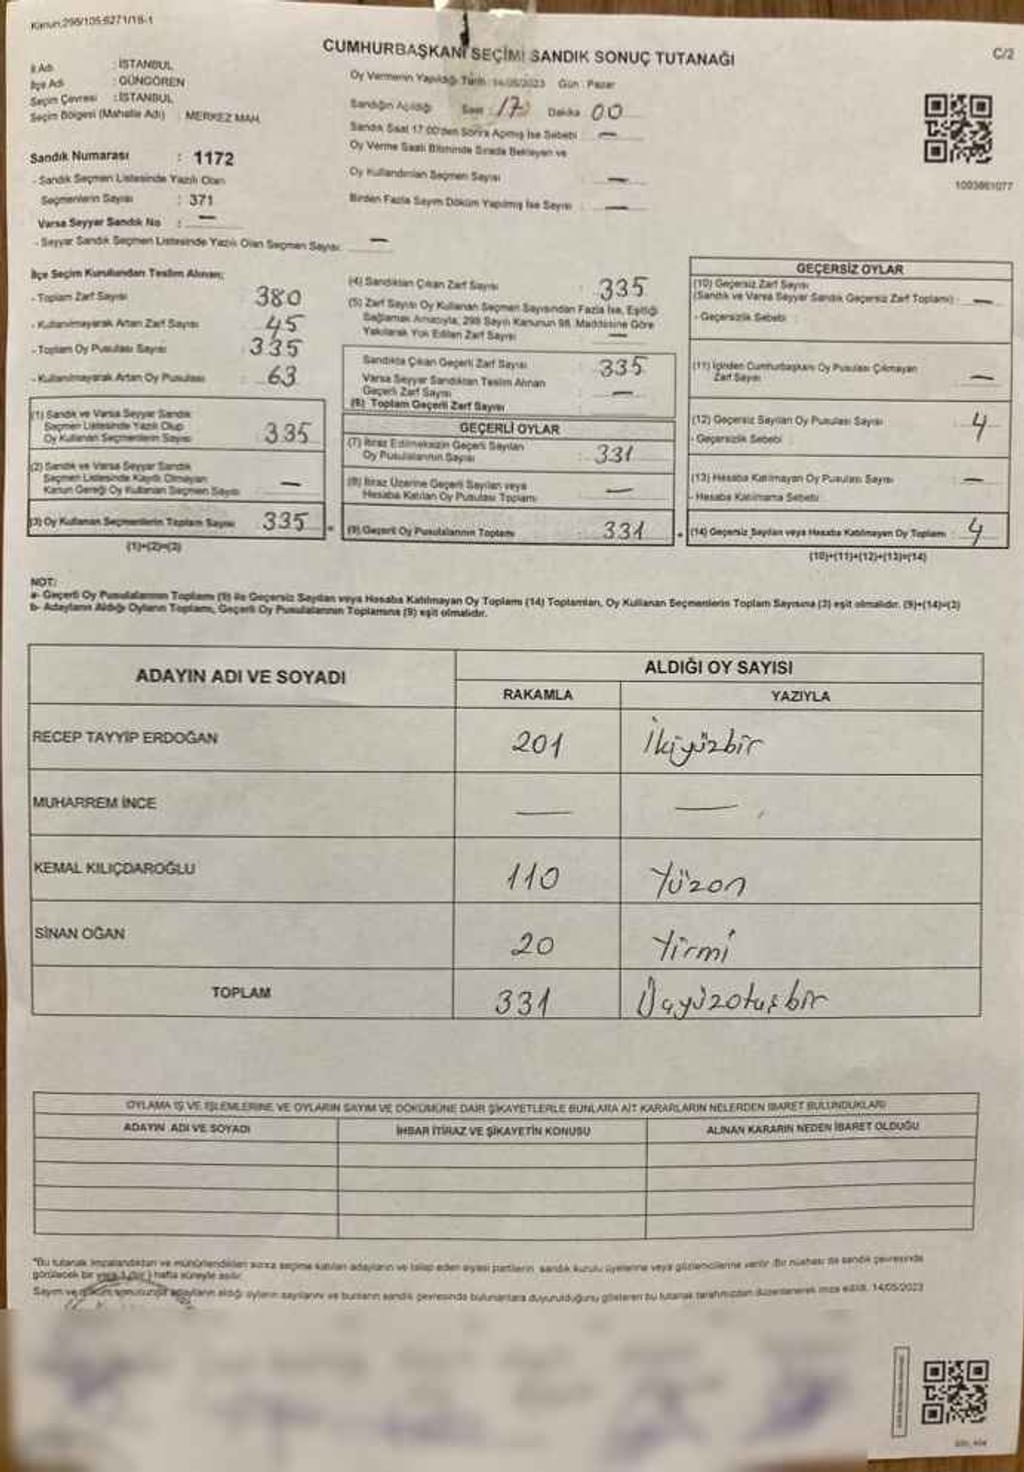 Kanun:298/105;6271/18-1
CUMHURBAŞKANI SEÇİMİ SANDIK SONUÇ TUTANAĞI
C/2
İl Adı : İSTANBUL
İlçe Adı : GÜNGÖREN
Seçim Çevresi : İSTANBUL
Seçim Bölgesi (Mahalle Adı) : MERKEZ MAH.
Oy Vermenin Yapıldığı Tarih: 14/05/2023 Gün : Pazar
Sandığın Açıldığı Saat : 17 Dakika 00
Sandık Saat 17:00'den Sonra Açılmış İse Sebebi : —
Oy Verme Saati Bitiminde Sırada Bekleyen ve
Oy Kullandırılan Seçmen Sayısı : —
Birden Fazla Sayım Döküm Yapılmış İse Sayısı : —
1003861077
Sandık Numarası : 1172
- Sandık Seçmen Listesinde Yazılı Olan
Seçmenlerin Sayısı : 371
Varsa Seyyar Sandık No : —
- Seyyar Sandık Seçmen Listesinde Yazılı Olan Seçmen Sayısı: —
İlçe Seçim Kurulundan Teslim Alınan:
- Toplam Zarf Sayısı 380
- Kullanılmayarak Artan Zarf Sayısı 45
- Toplam Oy Pusulası Sayısı : 335
- Kullanılmayarak Artan Oy Pusulası 63
(1) Sandık ve Varsa Seyyar Sandık
Seçmen Listesinde Yazılı Olup
Oy Kullanan Seçmenlerin Sayısı 335
(2) Sandık ve Varsa Seyyar Sandık
Seçmen Listesinde Kayıtlı Olmayan
Kanun Gereği Oy Kullanan Seçmen Sayısı —
(3) Oy Kullanan Seçmenlerin Toplam Sayısı 335
(1)+(2)=(3)
(4) Sandıktan Çıkan Zarf Sayısı : 335
(5) Zarf Sayısı Oy Kullanan Seçmen Sayısından Fazla İse, Eşitliği
Sağlamak Amacıyla, 298 Sayılı Kanunun 98. Maddesine Göre
Yakılarak Yok Edilen Zarf Sayısı : —
Sandıkta Çıkan Geçerli Zarf Sayısı : 335
Varsa Seyyar Sandıktan Teslim Alınan
Geçerli Zarf Sayısı : —
(6) Toplam Geçerli Zarf Sayısı
GEÇERLİ OYLAR
(7) İtiraz Edilmeksizin Geçerli Sayılan
Oy Pusulalarının Sayısı : 331
(8) İtiraz Üzerine Geçerli Sayılan veya
Hesaba Katılan Oy Pusulası Toplamı : —
(9) Geçerli Oy Pusulalarının Toplamı : 331
GEÇERSİZ OYLAR
(10) Geçersiz Zarf Sayısı
(Sandık ve Varsa Seyyar Sandık Geçersiz Zarf Toplamı) : —
- Geçersizlik Sebebi :
(11) İçinden Cumhurbaşkanı Oy Pusulası Çıkmayan
Zarf Sayısı : —
(12) Geçersiz Sayılan Oy Pusulası Sayısı : 4
- Geçersizlik Sebebi :
(13) Hesaba Katılmayan Oy Pusulası Sayısı : —
- Hesaba Katılmama Sebebi :
(14) Geçersiz Sayılan veya Hesaba Katılmayan Oy Toplamı : 4
(10)+(11)+(12)+(13)=(14)
NOT:
a- Geçerli Oy Pusulalarının Toplamı (9) ile Geçersiz Sayılan veya Hesaba Katılmayan Oy Toplamı (14) Toplamları, Oy Kullanan Seçmenlerin Toplam Sayısına (3) eşit olmalıdır. (9)+(14)=(3)
b- Adayların Aldığı Oyların Toplamı, Geçerli Oy Pusulalarının Toplamına (9) eşit olmalıdır.
ADAYIN ADI VE SOYADI
ALDIĞI OY SAYISI
RAKAMLA YAZIYLA
RECEP TAYYİP ERDOĞAN 201 İkiyüzbir
MUHARREM İNCE — —
KEMAL KILIÇDAROĞLU 110 Yüzon
SİNAN OĞAN 20 Yirmi
TOPLAM 331 Üçyüzotuzbir
OYLAMA İŞ VE İŞLEMLERİNE VE OYLARIN SAYIM VE DÖKÜMÜNE DAİR ŞİKAYETLERLE BUNLARA AİT KARARLARIN NELERDEN İBARET BULUNDUKLARI
ADAYIN ADI VE SOYADI İHBAR İTİRAZ VE ŞİKAYETİN KONUSU ALINAN KARARIN NEDEN İBARET OLDUĞU
*Bu tutanak imzalandıktan ve mühürlendikten sonra seçime katılan adayların ve talep eden siyasi partilerin sandık kurulu üyelerine veya gözlemcilerine verilir. Bir nüshası da sandık çevresinde
görülecek bir yere 1 (bir) hafta süreyle asılır.
Sayım ve döküm sonucunda adayların aldığı oyların sayılarını ve bunların sandık çevresinde bulunanlara duyurulduğunu gösteren bu tutanak tarafımızdan düzenlenerek imza edildi. 14/05/2023